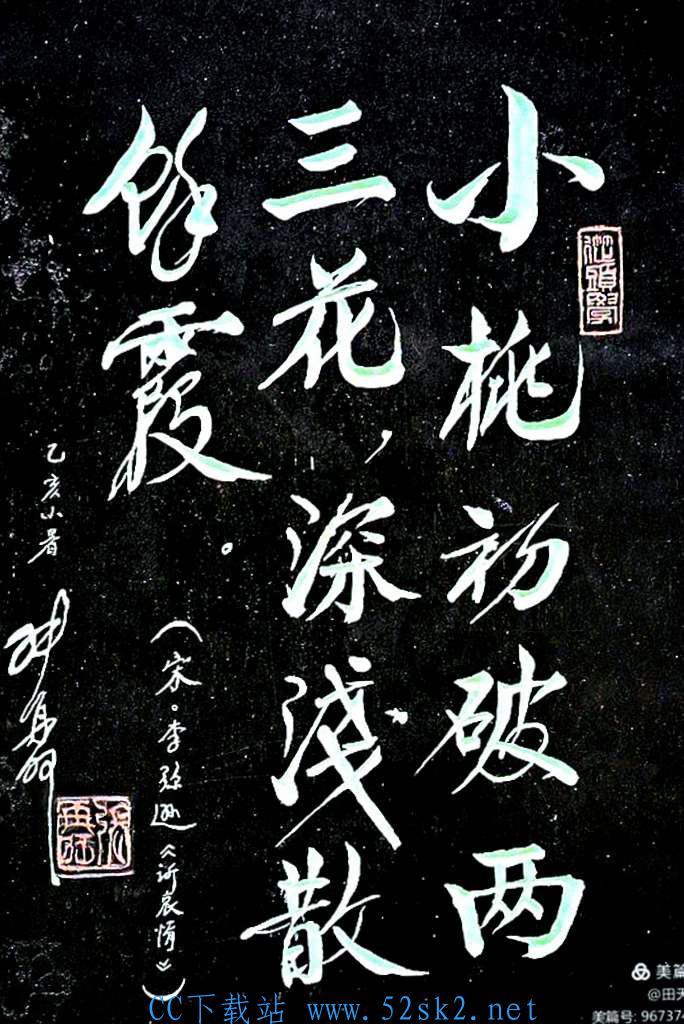 小桃初破两
三花，深浅散
馀霞。
（宋。李弥逊《诉衷情》）
乙亥小暑
CC下载站 www.52sk2.net
美篇
@田天
美篇号: 967374